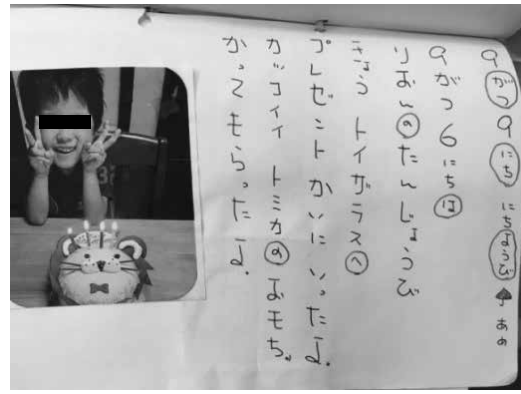 9がつ9にち にちようび
9がつ6にちは
りおんのたんじょうび
きょう トイザラスへ
プレゼントかいにいったよ.
カッコイイ トミカのおモちゃ
かってもらったよ.